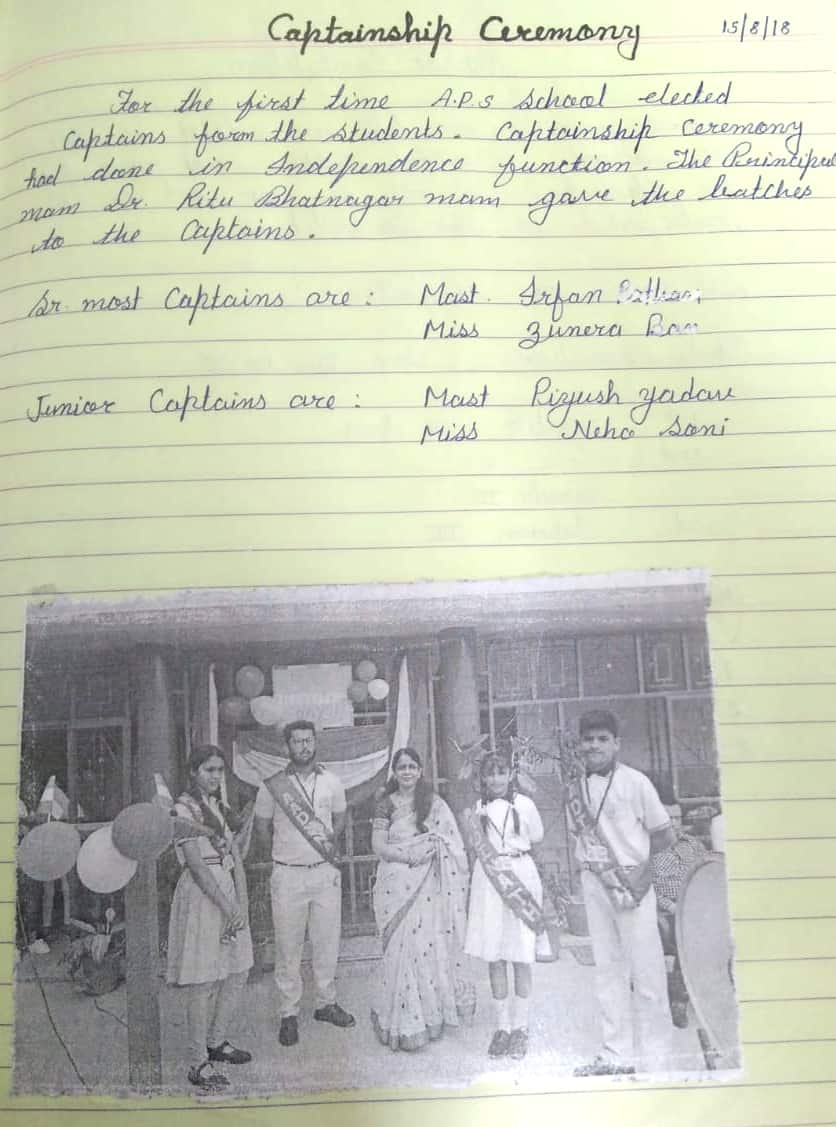 Captainship Ceremony 15/8/18
For the first time A.P.S School elected
Captains form the students. Captainship Ceremony
had done in Independence function. The Principal
mam Dr. Ritu Bhatnagar mam gave the batches
to the Captains.
Sr. most Captains are : Mast. Irfan
Miss Zunera Ban
Junior Captains are : Mast Piyush Yadav
Miss Neha Soni